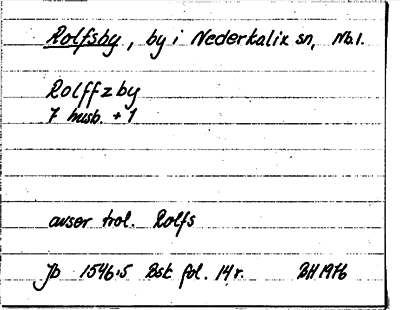 Rolfsby, by i Nederkalix sn, Nb.l.
Rolffzby
7 husb. + 1
avser trol. Rolfs
Jb 1546:5 Bst fol. 14 r. BH 1976